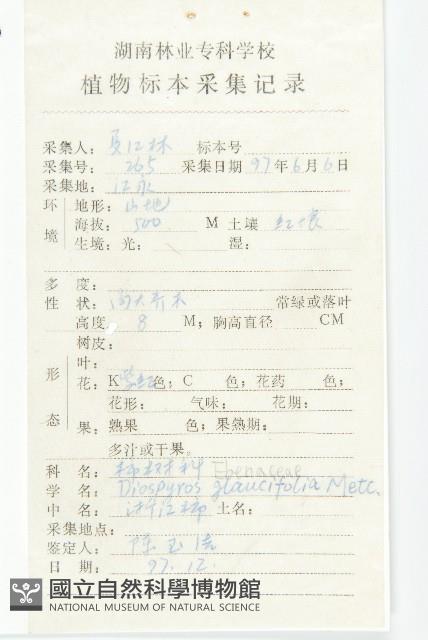 湖南林业专科学校
植物标本采集记录
采集人：夏江林 标本号
采集号：265 采集日期 97年6月6日
采集地：江永
环境 地形：山地
海拔：500 M 土壤 红壤
生境：光： 湿：
多度：
性状： 乔木 常绿或落叶
高度 8 M；胸高直径 CM
树皮：
形态 叶：
花：K紫红色；C 色；花药 色；
花形： 气味； 花期：
果：熟果 色；果熟期：
多汁或干果。
科名：柿树科 Ebenaceae
学名：Diospyros glaucifolia Metc.
中名：浙江柿 土名：
采集地点：
鉴定人：陈玉
日期：97.12.
國立自然科學博物館
NATIONAL MUSEUM OF NATURAL SCIENCE